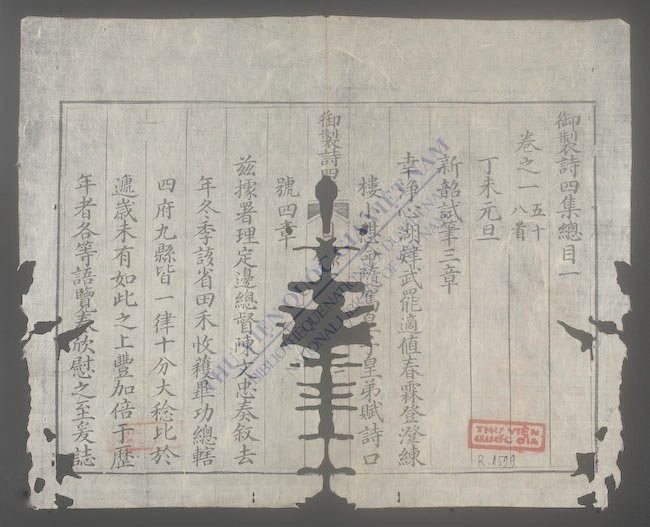 御製詩四集總目一
卷之一 五十八首
丁未元旦
新韶試筆三章
幸淨心湖蟬武罷適值春霖登澄練
樓小憩命隨舊皇子皇弟賦詩口
御製詩四
號四章
兹據署理定邊總督陳文忠奏叙去
年冬季該省田禾收穫畢功總轄
四府九縣皆一律十分大稔比於
遞歲未有如此之上豐加倍于歷
年者各等語覽奏欣慰之至爰誌
THƯ VIỆN QUỐC GIA VIỆT NAM
BIBLIOTHEQUE NATIONALE DU VIETNAM
NATIONAL LIBRARY OF VIETNAM
THƯ VIỆN
QUỐC GIA